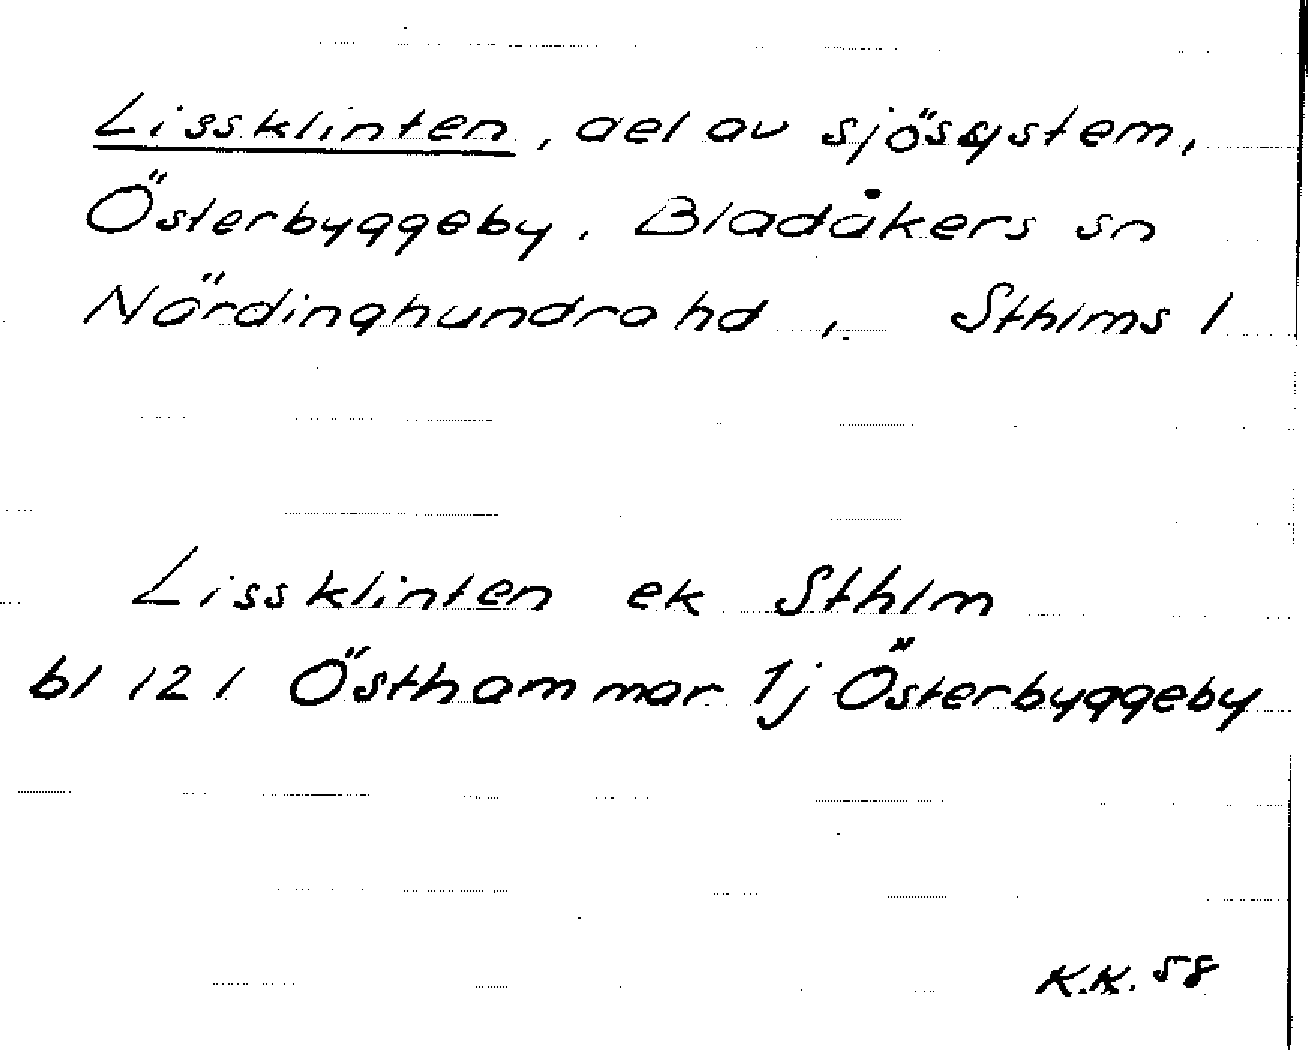 Lissklinten, del av sjösystem,
Österbyggeby, Bladåkers sn
Närdinghundra hd, Sthlms l
Lissklinten ek Sthlm
bl 121 Östhammar 1j Österbyggeby
K.K. 58